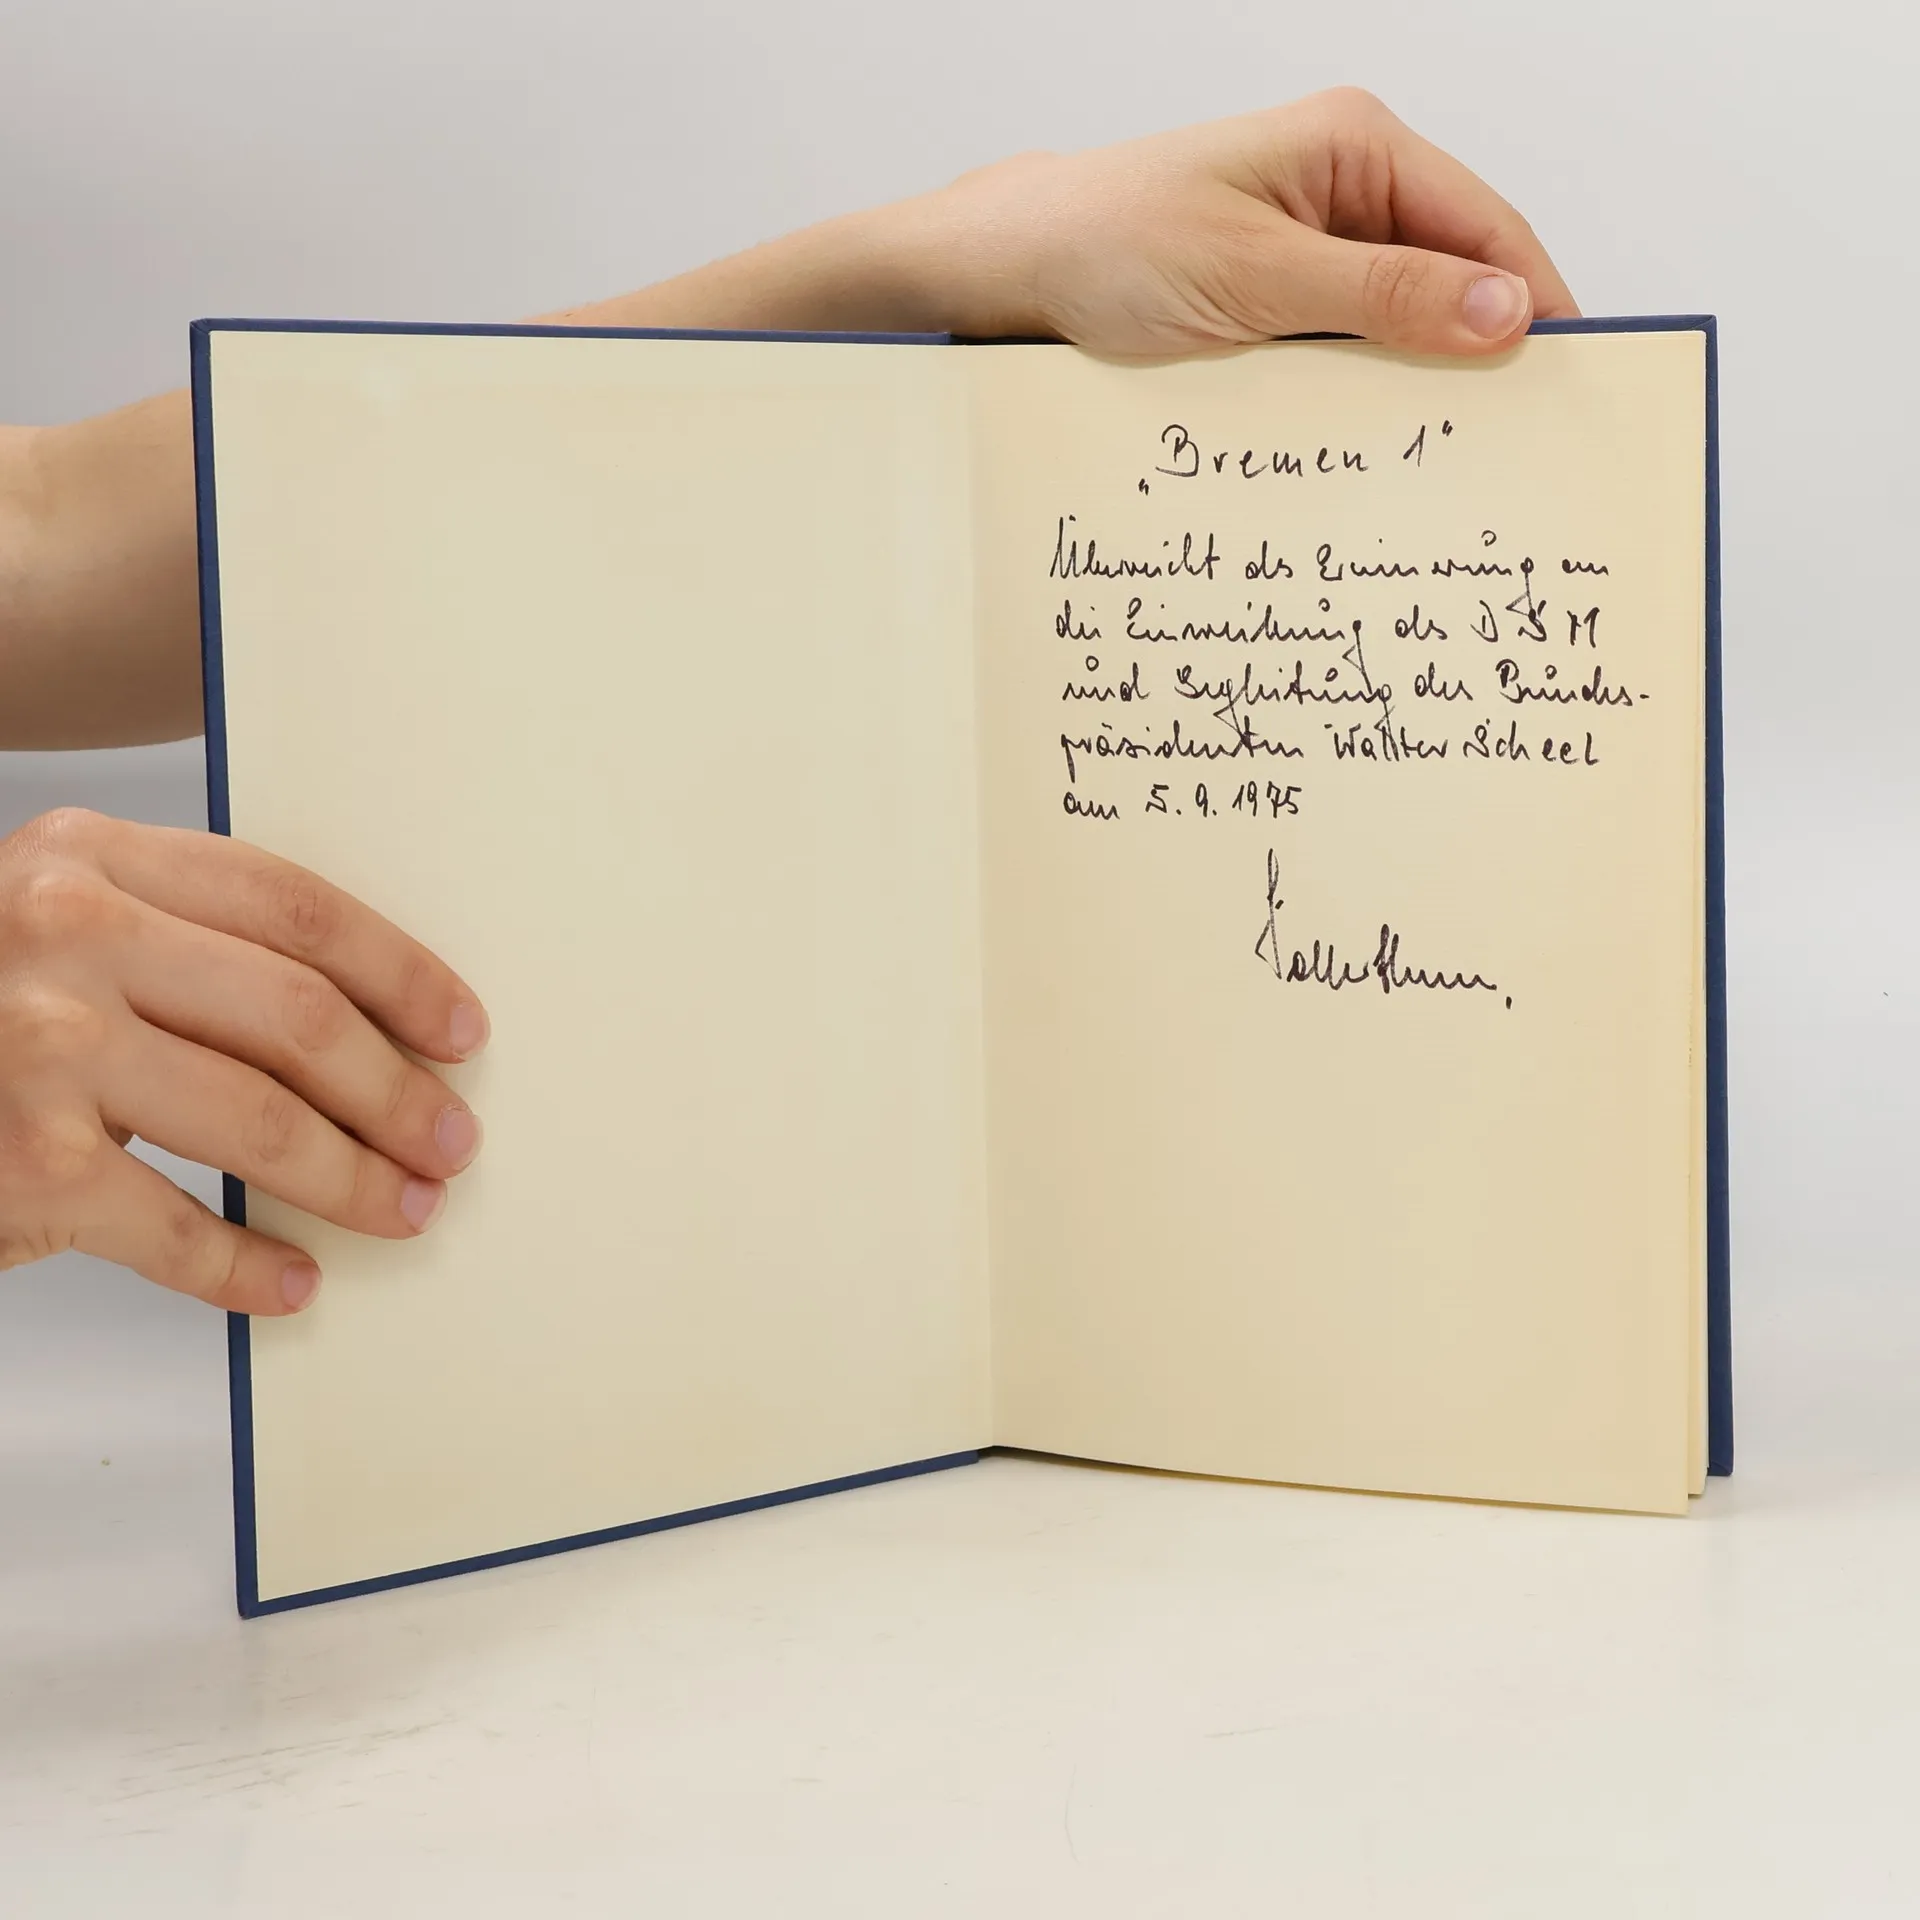 „Bremen 1“
Überreicht als Erinnerung an
die Einweihung des DSM
und Begleitung des Bundes-
präsidenten Walter Scheel
am 5. 9. 1975